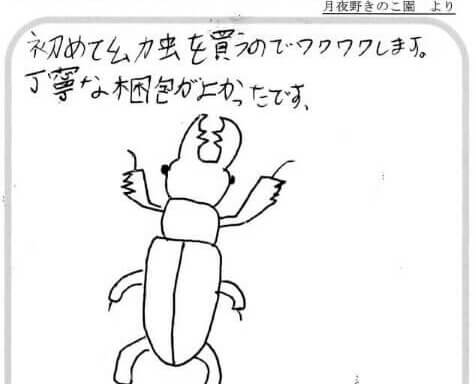 月夜野きのこ園　より
初めて幼虫を買うのでワクワクします。
丁寧な梱包がよかったです、